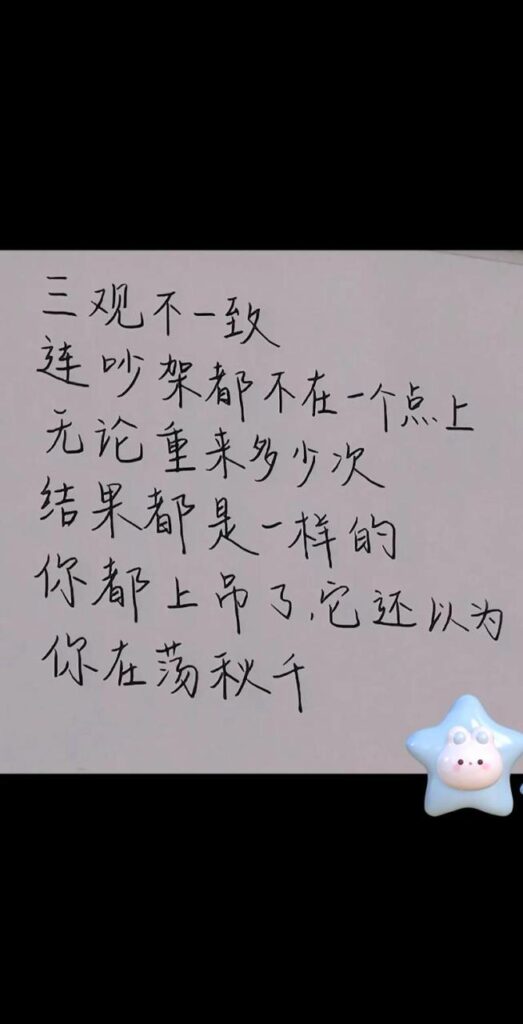 三观不一致
连吵架都不在一个点上
无论重来多少次
结果都是一样的
你都上吊了,它还以为
你在荡秋千